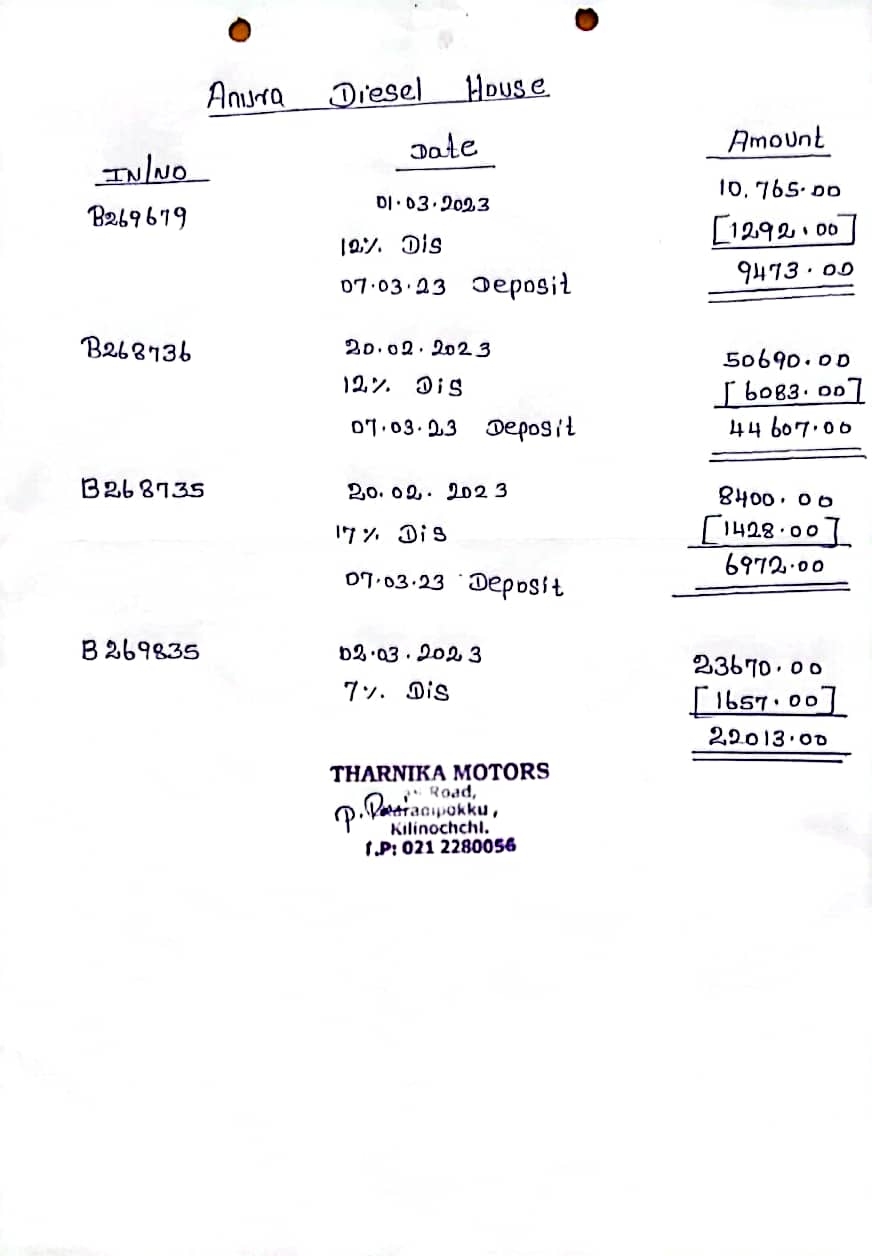 Anura Diesel House
IN/NO Date Amount
B269679 01.03.2023 10,765.00
12% Dis [1292.00]
07.03.23 Deposit 9473.00
B268736 20.02.2023 50690.00
12% Dis [6083.00]
07.03.23 Deposit 44607.00
B268735 20.02.2023 8400.00
17% Dis [1428.00]
07.03.23 Deposit 6972.00
B269835 02.03.2023 23670.00
7% Dis [1657.00]
22013.00
THARNIKA MOTORS
Road,
Kilinochchi.
T.P: 021 2280056